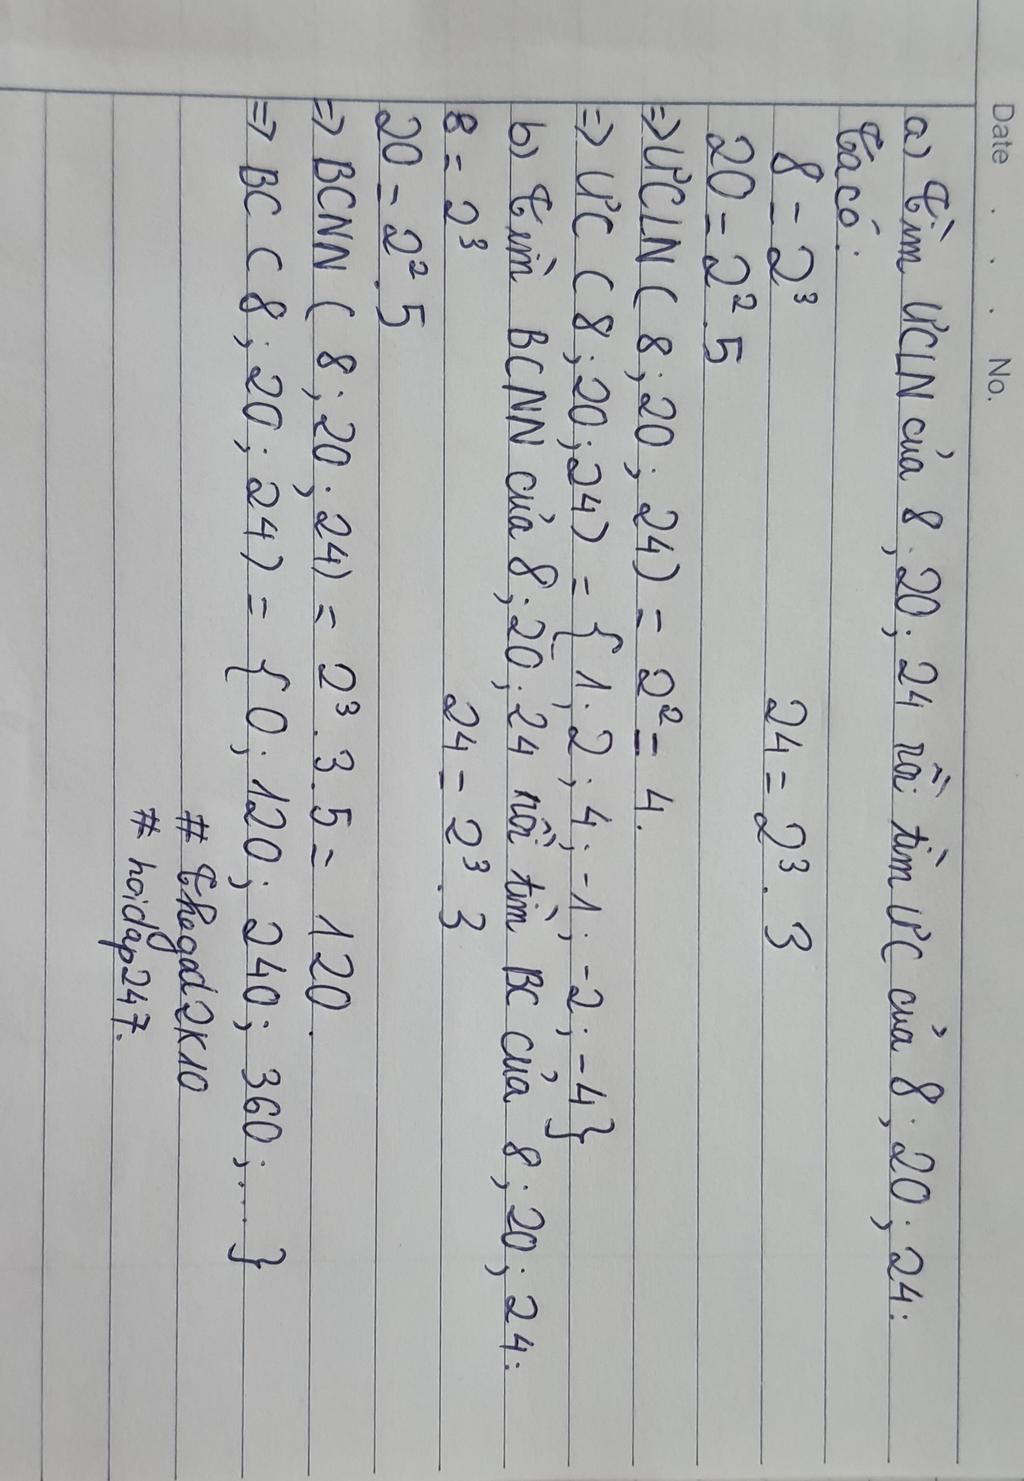 Date . . . No.
a) Tìm ƯCLN của 8; 20; 24 rồi tìm ƯC của 8; 20; 24:
Ta có:
8 = 2³ 24 = 2³.3
20 = 2².5
=> ƯCLN (8; 20; 24) = 2² = 4.
=> ƯC (8; 20; 24) = {1; 2; 4; -1; -2; -4}
b) Tìm BCNN của 8; 20; 24 rồi tìm BC của 8; 20; 24:
8 = 2³ 24 = 2³.3
20 = 2².5
=> BCNN (8; 20; 24) = 2³.3.5 = 120.
=> BC (8; 20; 24) = {0; 120; 240; 360; ...}
# hoidap247.